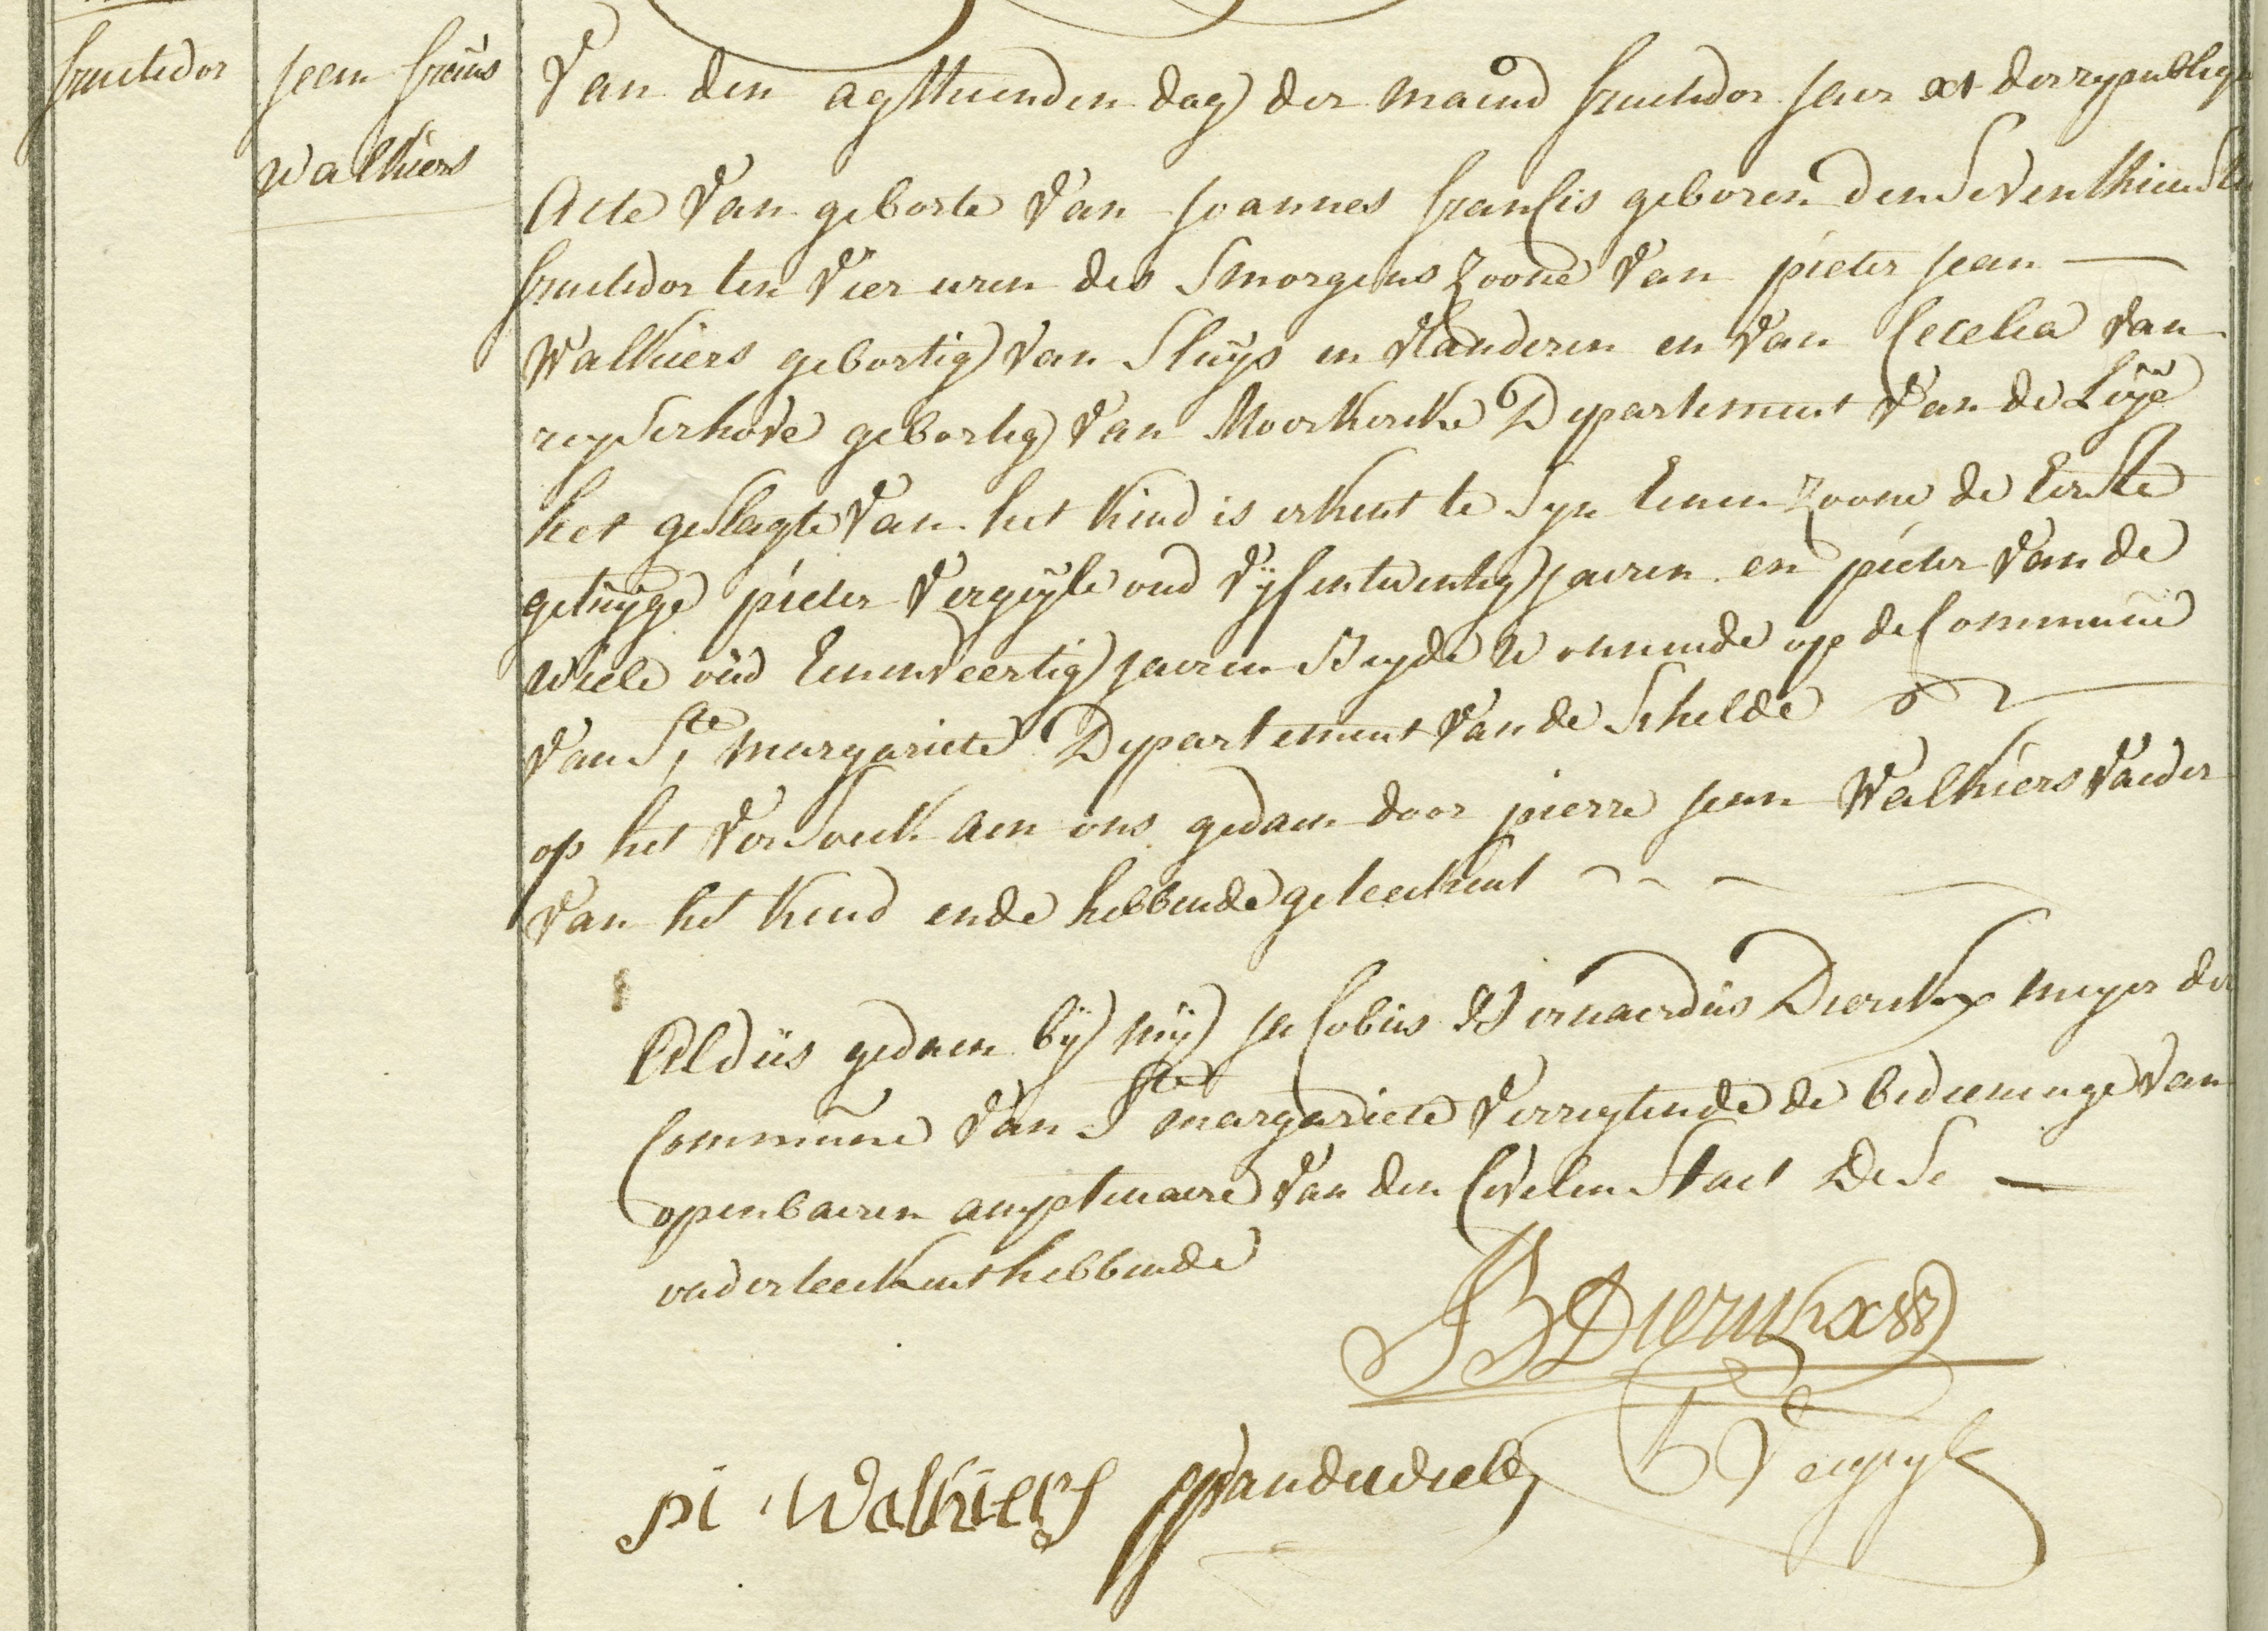 fructidor
jean fraüs
Walkiers
Van den agttienden dag der maend fructidor jaer XI der republiqu
Acte Van geborte Van joannes francis geboren den Seventhienste
fructidor ten vier uren des Smorgens Zoone van pieter jean
Walkiers gebortig van Sluÿs in vlanderen en van Cecelia van
reyserhove gebortig van Moerkercke Departement van de Leÿe
het geslagte van het kind is erkent te Syn Eenen Zoone de Eerste
getuÿge pieter Vergÿle oud Vÿfentwentig jaeren en pieter van de
wiele oud Eenenveertig jaeren Beyde Wonende op de Commune
van Ste margariete Departement van de Schelde
op het versoeck aen ons gedaen door pierre jean Walkiers vaeder
van het kend ende hebbende geteekent
Aldüs gedaen bÿ mÿ jacobüs Bernaerdüs Dierckx meyer der
Commune van Ste margariete verreytende de bedieninge van
openbaeren amptenaere van den Civilen Staet Dese
onderteekent hebbende
JB Dierickx
pi Walkiers pvandewiele P Vergyle